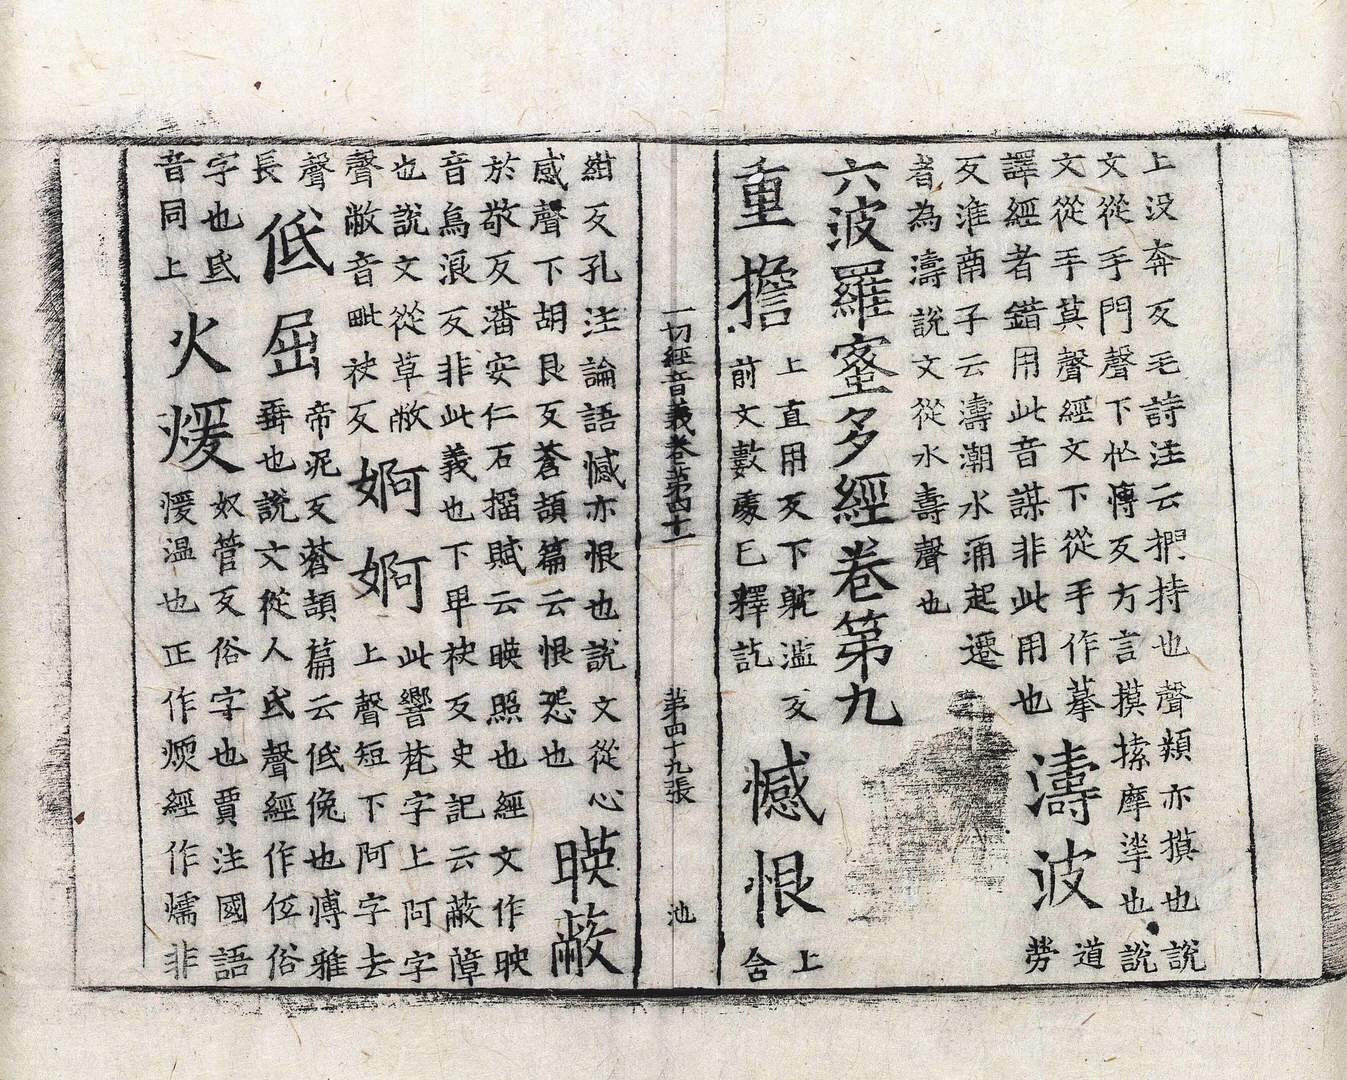 上没奔反毛詩注云捫持也聲類亦摸也說
文從手門聲下忙愽反方言摸㨞摩挲也說
文從手莫聲經文下從手作摹
譯經者錯用此音謨非此用也
濤波
道
勞
反淮南子云濤潮水涌起還
者為濤說文從水壽聲也
六波羅蜜多經卷第九
重擔
上直用反下躭濫反
前文數處已釋訖
憾恨
上
含
一切經音義卷第四十一 第四十九張 池
紺反孔注論語憾亦恨也說文從心
感聲下胡艮反蒼頡篇云恨怨也
暎蔽
於敬反潘安仁石榴賦云暎照也經文作映
音烏浪反非此義也下卑袂反史記云蔽障
也說文從草敝
聲敝音毗袂反
婀婀
此響梵字上阿字
上聲短下阿字去
聲
長
低屈
帝泥反蒼頡篇云低俛也愽雅
垂也說文從人氐聲經作仾俗
字也氐
音同上
火煖
奴管反俗字也賈注國語
煖温也正作煗經作燸非